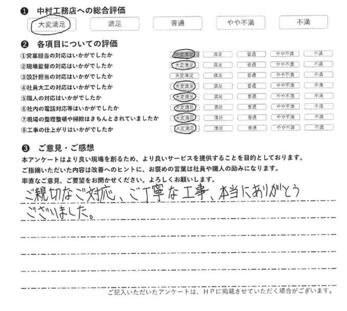 ❶ 中村工務店への総合評価
大変満足 満足 普通 やや不満 不満
❷ 各項目についての評価
①営業担当の対応はいかがでしたか 大変満足 満足 普通 やや不満 不満
②現場監督の対応はいかがでしたか 大変満足 満足 普通 やや不満 不満
③設計担当の対応はいかがでしたか 大変満足 満足 普通 やや不満 不満
④社員大工の対応はいかがでしたか 大変満足 満足 普通 やや不満 不満
⑤職人の対応はいかがでしたか 大変満足 満足 普通 やや不満 不満
⑥社内の電話対応等はいかがでしたか 大変満足 満足 普通 やや不満 不満
⑦現場の整理整頓や掃除はきちんとされていましたか 大変満足 満足 普通 やや不満 不満
⑧工事の仕上がりはいかがでしたか 大変満足 満足 普通 やや不満 不満
❸ ご意見・ご感想
本アンケートはより良い現場を創るため、より良いサービスを提供することを目的としております。
ご指摘いただいた内容は改善へのヒントに、お褒めの言葉は社員や職人の励みになります。
率直なご意見、ご要望をお聞かせください。よろしくお願いします。
ご親切なご対応、ご丁寧な工事、本当にありがとう
ございました。
ご記入いただいたアンケートは、HPに掲載させていただく場合がございます。